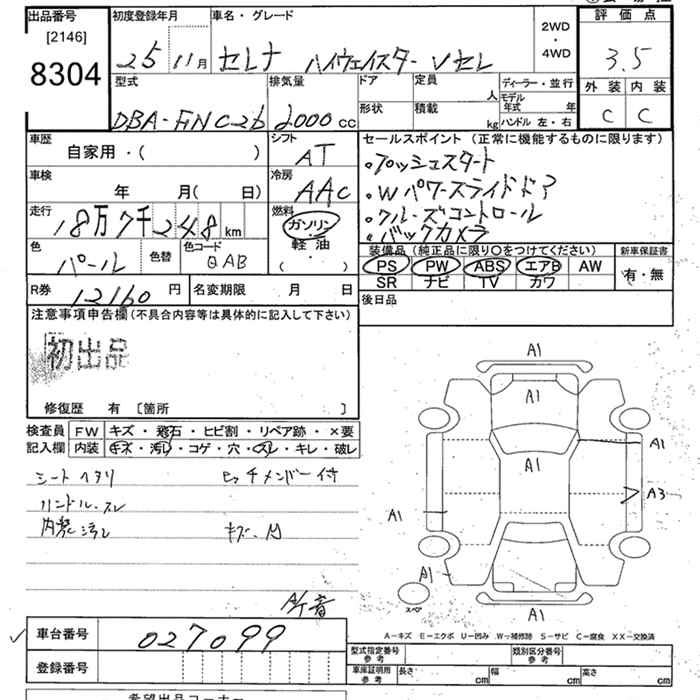 出品番号
[2146]
8304
初度登録年月
25 11月
車名・グレード
セレナ ハイウェイスター Vセレ
2WD
・
4WD
評価点
3.5
外装 内装
C C
型式
DBA-FNC26
排気量
2000 cc
ドア
形状
定員
人
積載
kg
ディーラー・並行
モデル年式 年
ハンドル 左・右
車歴
自家用・( )
シフト
AT
車検
年 月( 日)
冷房
AAC
走行
18万7千248 km
燃料
ガソリン
・
軽油
( )
色
パール
色替
色コード
QAB
R券
12160 円
名変期限 月 日
セールスポイント (正常に機能するものに限ります)
・プッシュスタート
・Wパワースライドドア
・クルーズコントロール
・バックカメラ
装備品 (純正品に限り〇をつけてください)
PS PW ABS エアB AW
SR ナビ TV カワ
新車保証書
有・無
後日品
注意事項申告欄(不具合内容等は具体的に記入して下さい)
初出品
修復歴 有 〔箇所 〕
検査員
記入欄
FW キズ・飛石・ヒビ割・リペア跡・×要
内装 キズ・汚れ・コゲ・穴・スレ・キレ・破レ
シートヘタリ
ハンドル・スレ
内装汚レ
ヒッチメンバー付
キズ・凹
A/T音
A1
A1
A1
A1
A3
A1
A1
A1
スペア
A-キズ E-エクボ U-凹み W-補修跡 S-サビ C-腐食 XX-交換済
車台番号
027099
登録番号
型式指定番号
参考
類別区分番号
参考
車庫証明用
参考
長さ cm
幅 cm
高さ cm
希望出品コーナー